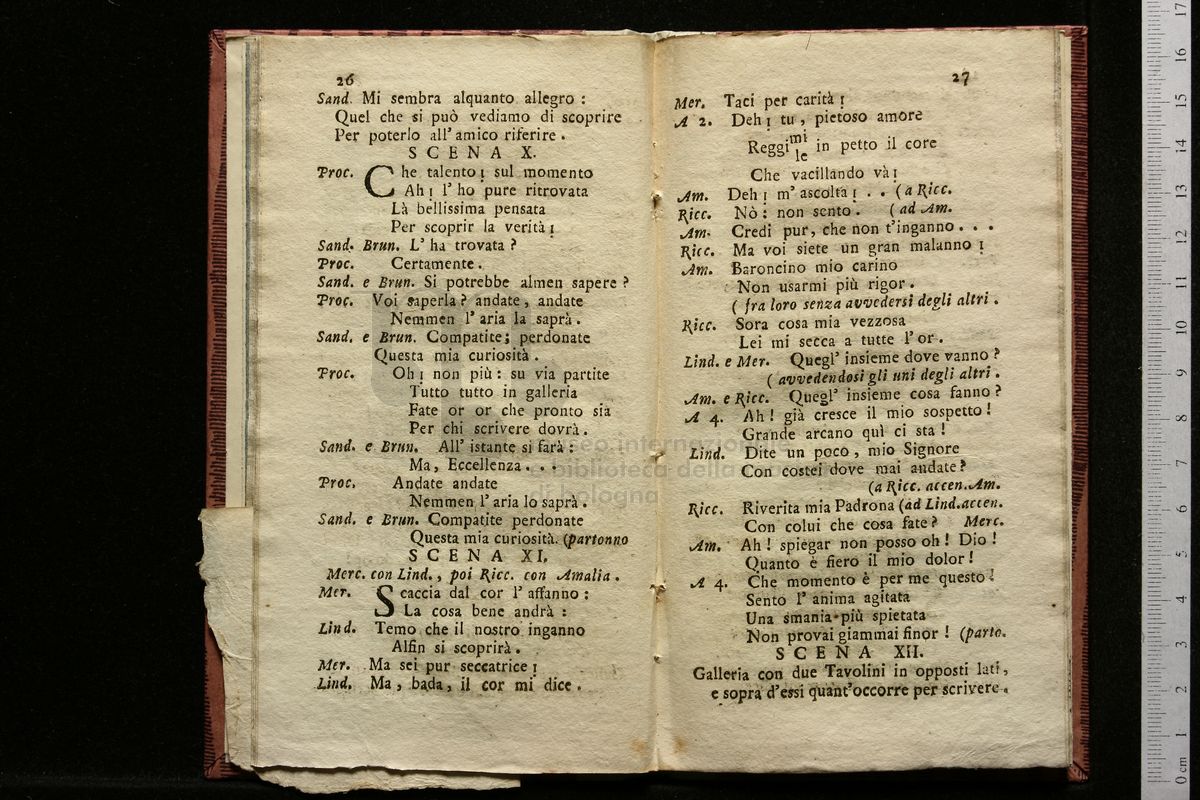 26
Sand. Mi sembra alquanto allegro :
Quel che si può vediamo di scoprire
Per poterlo all' amico riferire .
SCENA X.
Proc. Che talento ! sul momento
Ah ! l' ho pure ritrovata
Là bellissima pensata
Per scoprir la verità !
Sand. Brun. L' ha trovata ?
Proc. Certamente .
Sand. e Brun. Si potrebbe almen sapere ?
Proc. Voi saperla ? andate , andate
Nemmen l' aria la saprà .
Sand. e Brun. Compatite ; perdonate
Questa mia curiosità .
Proc. Oh ! non più : su via partite
Tutto tutto in galleria
Fate or or che pronto sia
Per chi scrivere dovrà .
Sand. e Brun. All' istante si farà :
Ma , Eccellenza . . .
Proc. Andate andate
Nemmen l' aria lo saprà .
Sand. e Brun. Compatite perdonate
Questa mia curiosità. (partonno
SCENA XI.
Merc. con Lind. , poi Ricc. con Amalia .
Mer. Scaccia dal cor l' affanno :
La cosa bene andrà :
Lind. Temo che il nostro inganno
Alfin si scoprirà .
Mer. Ma sei pur seccatrice !
Lind. Ma , bada , il cor mi dice .
27
Mer. Taci per carità !
A 2. Deh ! tu , pietoso amore
Reggi mi le in petto il core
Che vacillando và !
Am. Deh ! m' ascolta ! . . ( a Ricc.
Ricc. Nò : non sento . ( ad Am.
Am. Credi pur, che non t'inganno . . .
Ricc. Ma voi siete un gran malanno !
Am. Baroncino mio carino
Non usarmi più rigor .
( fra loro senza avvedersi degli altri .
Ricc. Sora cosa mia vezzosa
Lei mi secca a tutte l' or .
Lind. e Mer. Quegl' insieme dove vanno ?
( avvedendosi gli uni degli altri .
Am. e Ricc. Quegl' insieme cosa fanno ?
A 4. Ah ! già cresce il mio sospetto !
Grande arcano quì ci sta !
Lind. Dite un poco , mio Signore
Con costei dove mai andate ?
(a Ricc. accen. Am.
Ricc. Riverita mia Padrona (ad Lind. accen.
Con colui che cosa fate ? Merc.
Am. Ah ! spiegar non posso oh ! Dio !
Quanto è fiero il mio dolor !
A 4. Che momento è per me questo !
Sento l' anima agitata
Una smania più spietata
Non provai giammai finor ! (parto.
SCENA XII.
Galleria con due Tavolini in opposti lati,
e sopra d'essi quant'occorre per scrivere .
museo internazionale
e biblioteca della musica
di bologna
0 cm 1 2 3 4 5 6 7 8 9 10 11 12 13 14 15 16 17